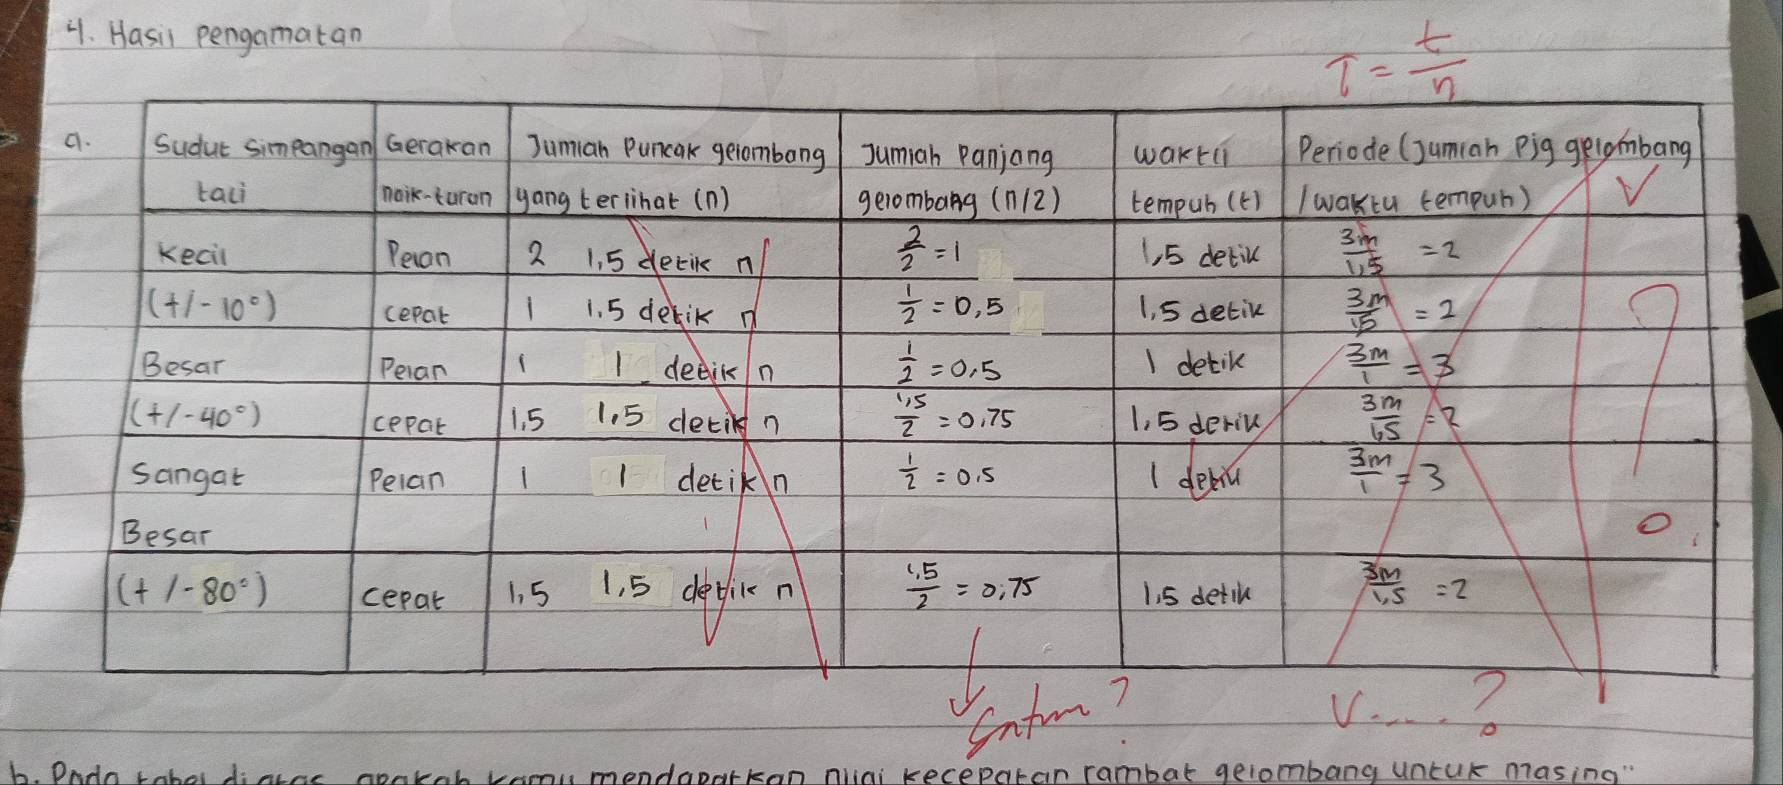 4. Hasil pengamatan
T = t/n
a. Sudut simpangan tali | Gerakan naik-turun | Jumlah Puncak gelombang yang terlihat (n) | Jumlah Panjang gelombang (n/2) | waktu tempuh (t) | Periode (Jumlah pjg gelombang / waktu tempuh) V
Kecil | Pelan | 2 1,5 detik n | 2/2 = 1 | 1,5 detik | 3m/1,5 = 2
(+/- 10°) | cepat | 1 1.5 detik n | 1/2 = 0,5 | 1,5 detik | 3m/1,5 = 2
Besar | Pelan | 1 1 detik n | 1/2 = 0,5 | 1 detik | 3m/1 = 3
(+/- 40°) | cepat | 1,5 1,5 detik n | 1,5/2 = 0,75 | 1,5 detik | 3m/1,5 = 2
Sangat | Pelan | 1 1 detik n | 1/2 = 0.5 | 1 detik | 3m/1 = 3
Besar
(+/- 80°) | cepat | 1,5 1,5 detik n | 1,5/2 = 0,75 | 1,5 detik | 3m/1,5 = 2
?
V.....?
b. Pada tabel diatas apakah kamu mendapatkan nilai kecepatan rambat gelombang untuk masing"